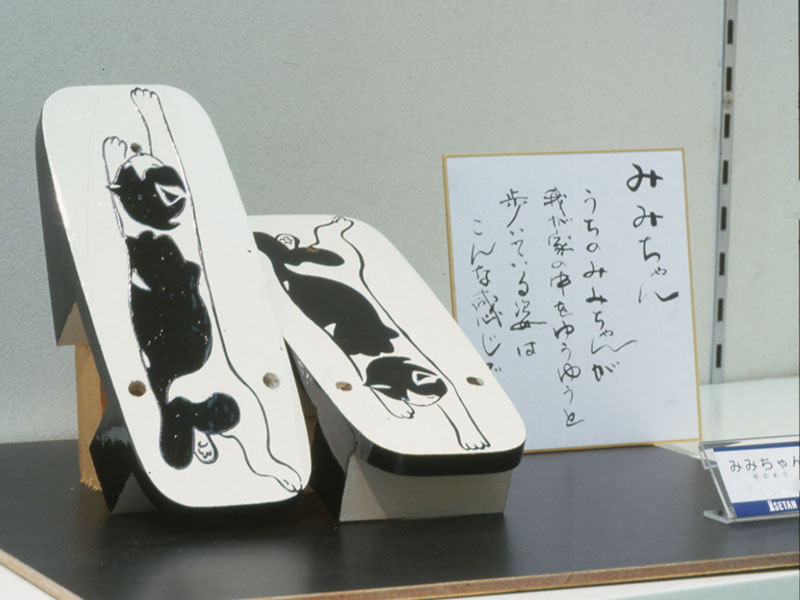 みみちゃん
うちのみみちゃんが
我が家の中をゆうゆうと
歩いている姿は
こんな感じで
みみちゃん
ISETAN